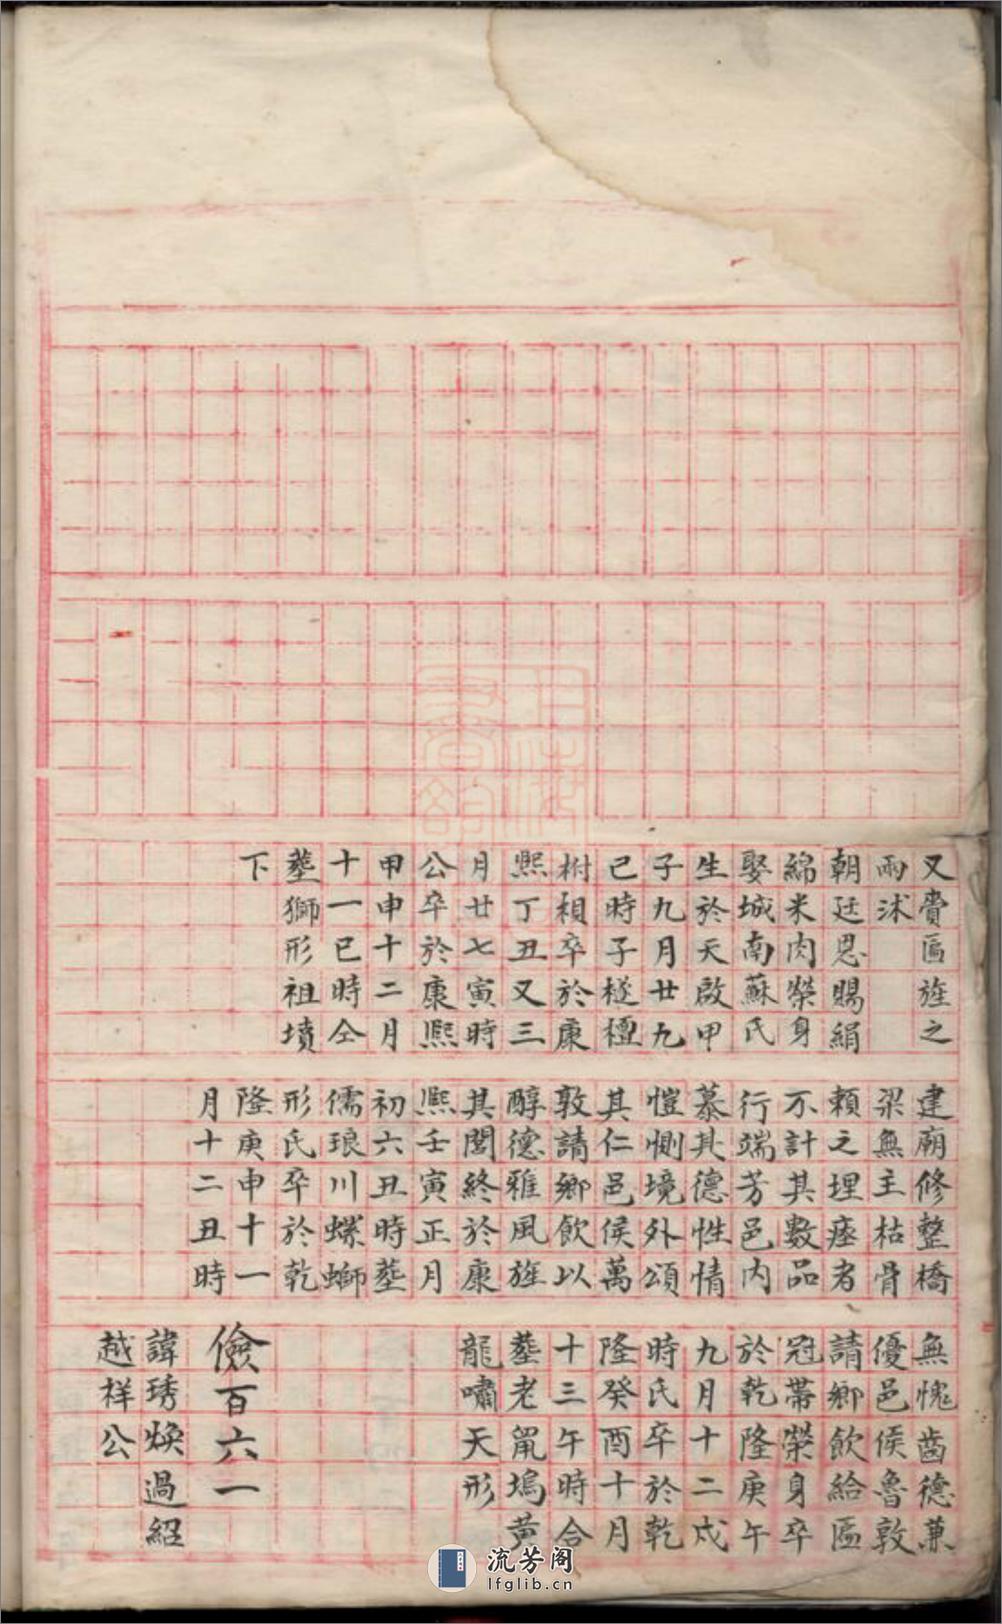 又賚匾旌之
兩沭
朝廷恩賜絹
綿米肉榮身
娶城南蘇氏
生於天啟甲
子九月廿九
已時子檖檀
樹相卒於康
熙丁丑又三
月廿七寅時
公卒於康熙
甲申十二月
十一巳時仝
塟獅形祖墳
下
建廟修整橋
梁無主枯骨
賴之埋瘞者
不計其數品
行端芳邑内
慕其德性情
愷惻境外頌
其仁邑侯萬
敦請鄉飲以
醇德雅風旌
其閭終於康
熙壬寅正月
初六丑時塟
儒琅川螺螄
形氏卒於乾
隆庚申十一
月十二丑時
無愧齒德兼
優邑侯魯敦
請鄉飲給匾
冠帶榮身卒
於乾隆庚午
九月十二戍
時氏卒於乾
隆癸酉十月
十三午時合
塟老鼠塢黄
龍嘯天形
儉百六一
諱琇煥過紹
越祥公
流芳阁
lfglib.cn